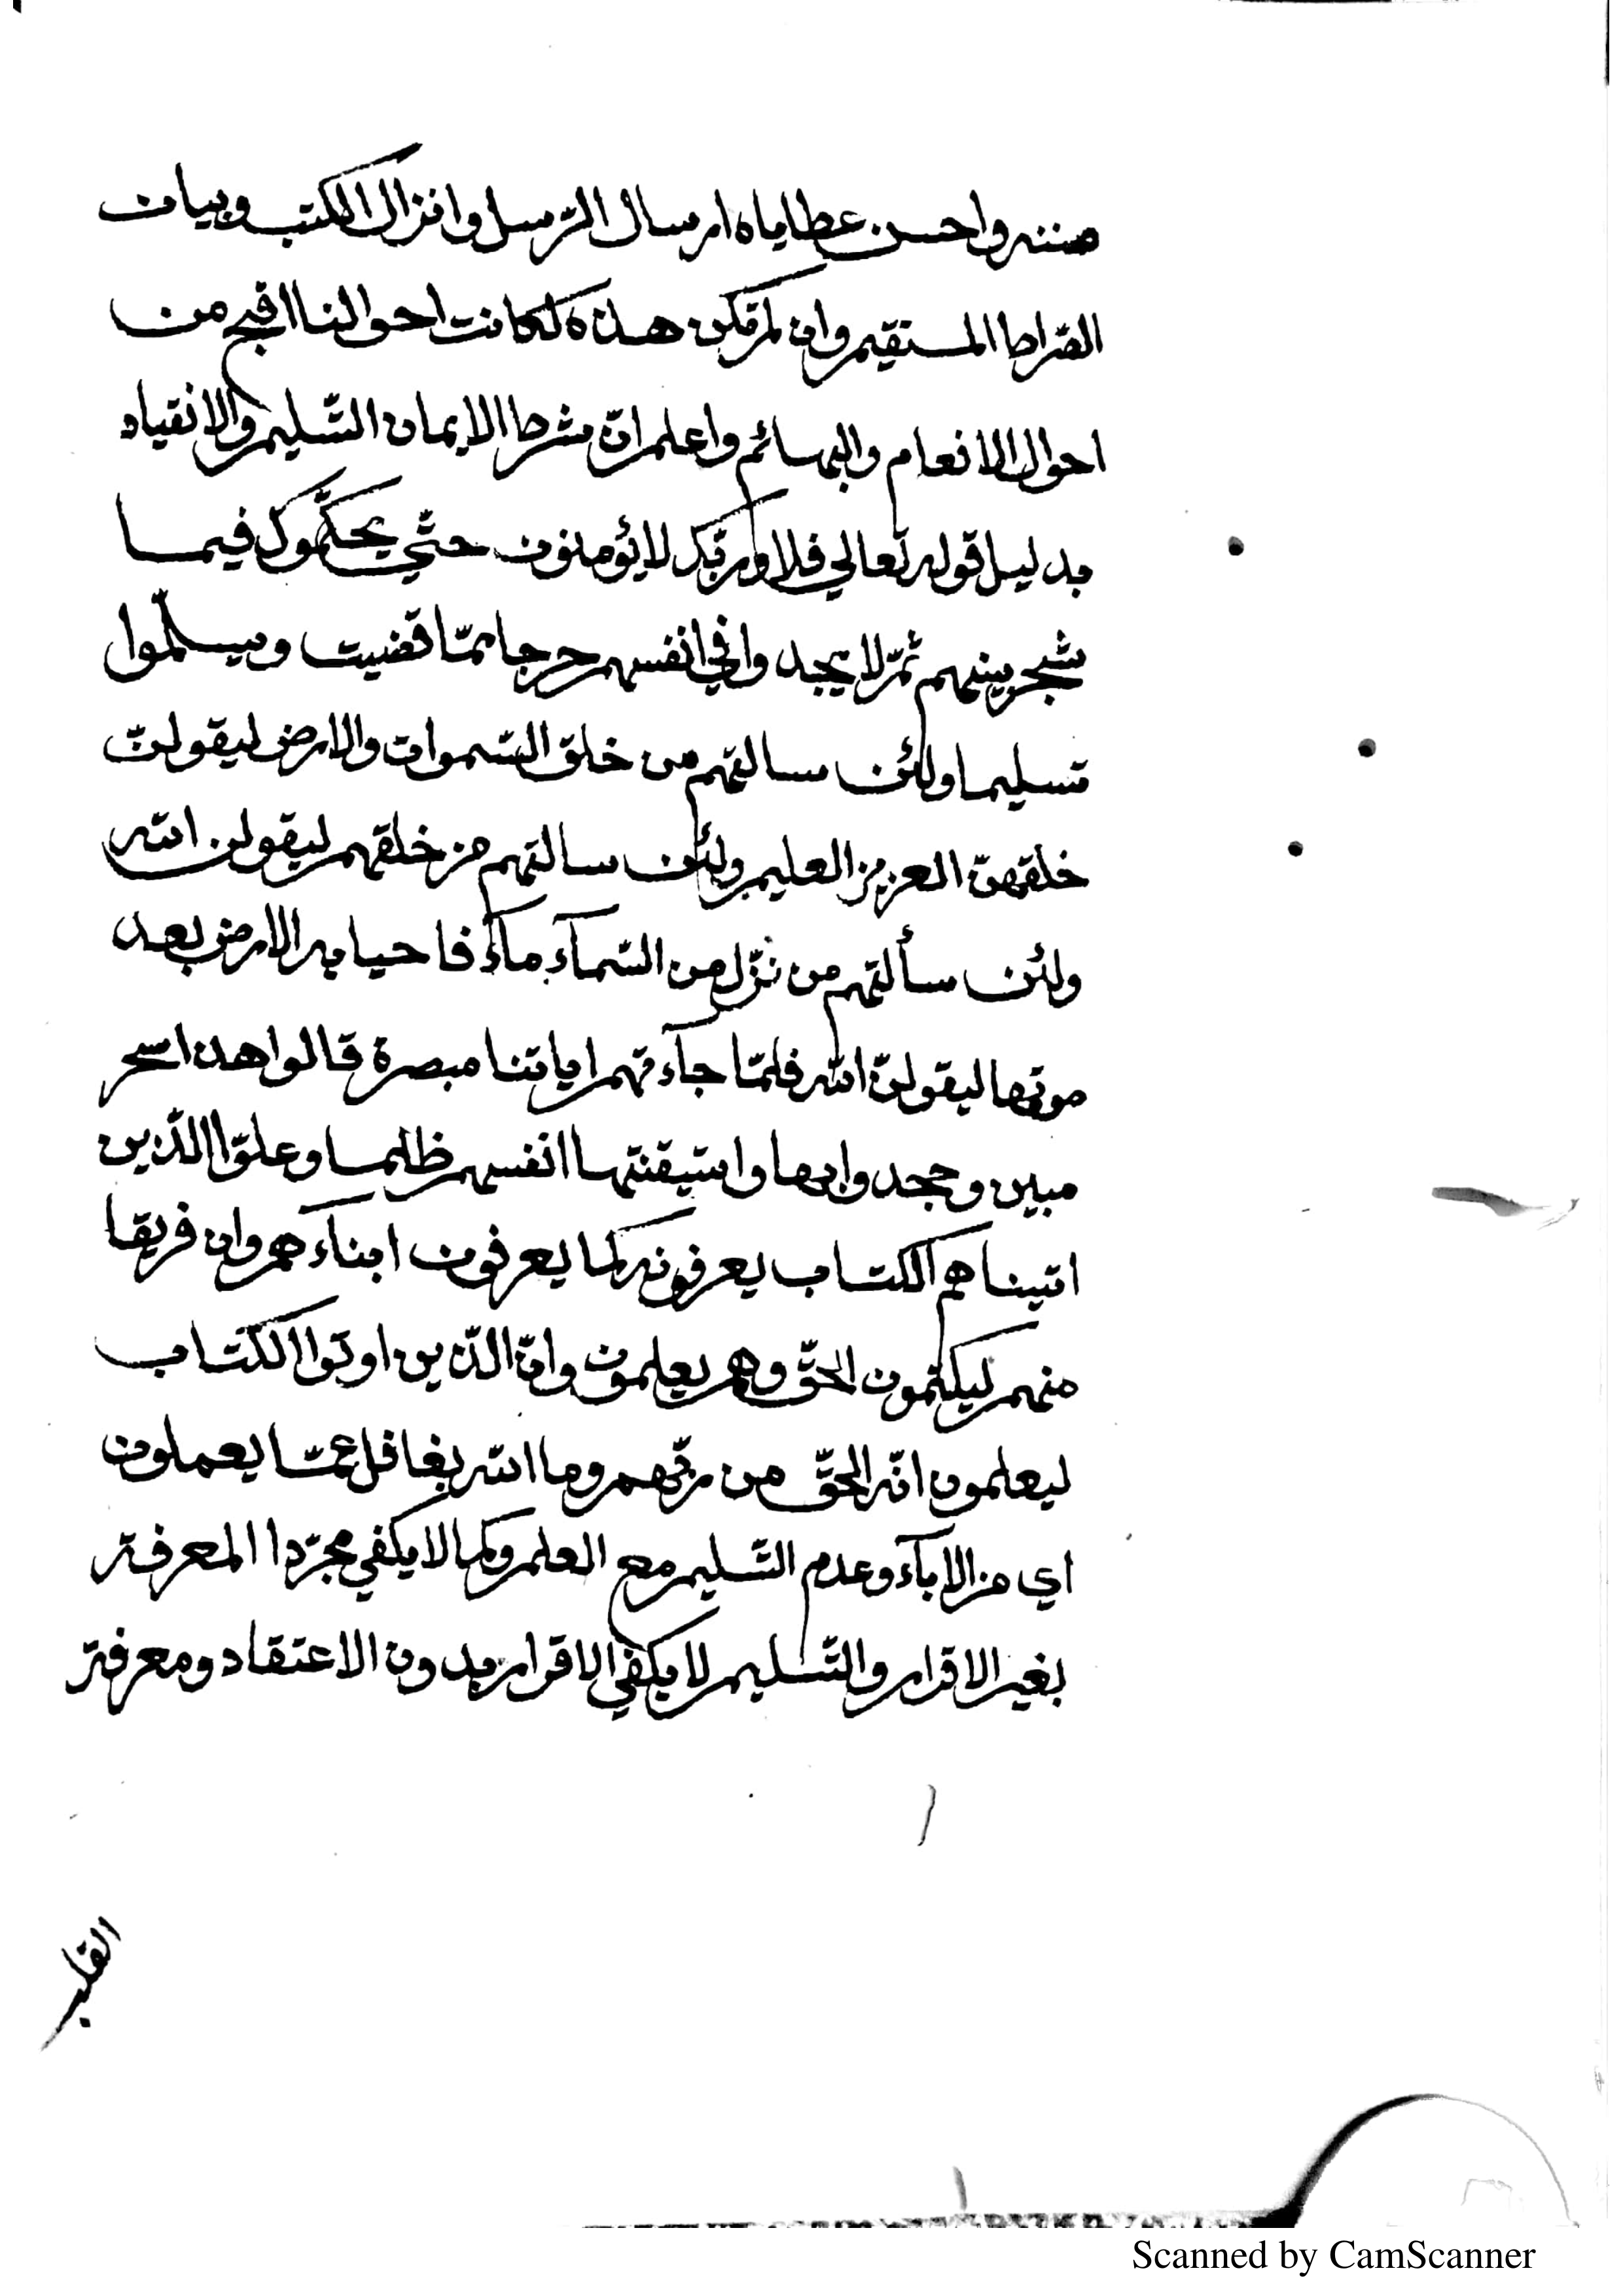 مننه واحسن عطاياه ارسال الرّسل وانزال الكتب وبيان
الصّراط المستقيم وان لم تكن هذه لكانت احوالنا اقبح من
احوال الانعام والبهائم واعلم انّ شرط الايمان التّسليم والانقياد
بدليل قوله تعالي فلا وربّك لا يؤمنون حتّي يحكّموك فيما
شجر بينهم ثمّ لا يجدوا في انفسهم حرجا ممّا قضيت ويسلّموا
تسليما ولئن سالتهم من خلق السّموات والارض ليقولنّ
خلقهنّ العزيز العليم ولئن سالتهم من خلقهم ليقولن الله
ولئن سألتهم من نزّل من السّمآء مآء فاحيا به الارض بعد
موتها ليقولنّ الله فلمّا جآءتهم اياتنا مبصرة قالوا هذا سحر
مبين وجحدوا بها واستيقنتها انفسهم ظليما وعلوّا الّذين
اتيناهم الكتاب يعرفونه كما يعرفون ابنآءهم وان فريقا
منهم ليكتمون الحقّ وهم يعلمون وانّ الّذين اوتوا الكتاب
ليعلمون انّه الحقّ من ربّهم وما الله بغافل عمّا يعملون
اي من الابآء وعدم التّسليم مع العلم وكما لا يكفي مجرّدا المعرفة
بغير الاقرار والتّسليم لا يكفي الاقرار بدون الاعتقاد ومعرفة
القلب
Scanned by CamScanner